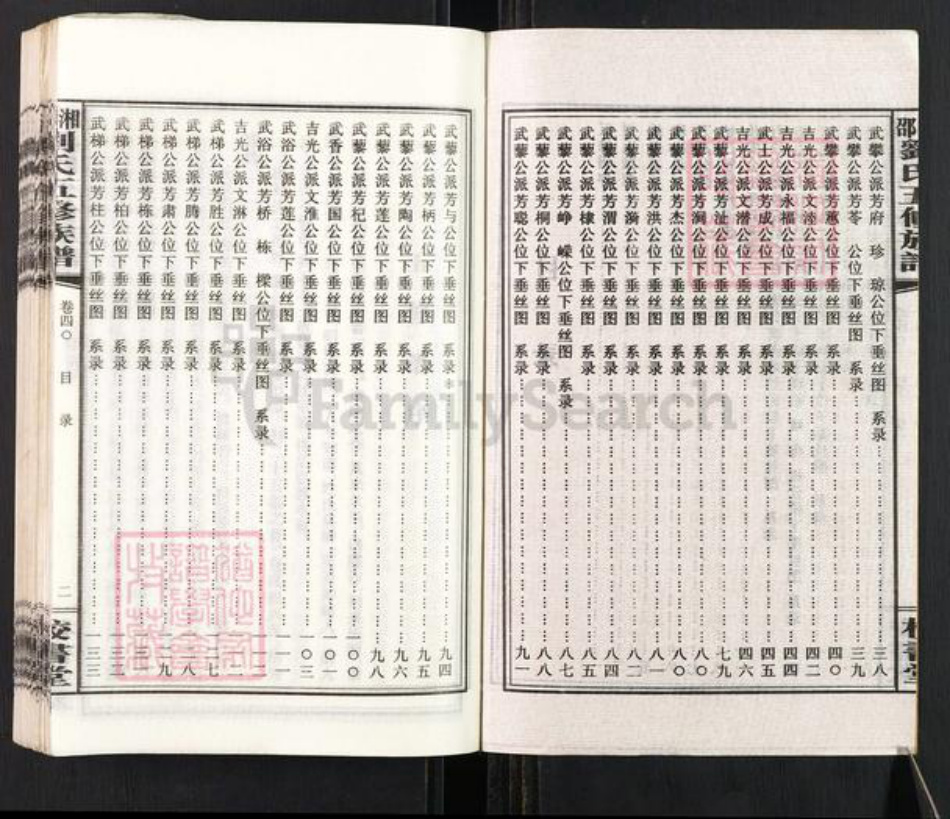 武攀公派芳府 珍 琼公位下垂丝图 系录……三八
武攀公派芳苓 公位下垂丝图 系录……三九
武攀公派芳蕙公位下垂丝图 系录……四〇
吉光公派文 公位下垂丝图 系录……四二
吉光公派永福公位下垂丝图 系录……四四
武士公派芳成公位下垂丝图 系录……四五
吉光公派文潜公位下垂丝图 系录……四六
武藜公派芳沚公位下垂丝图 系录……七九
武藜公派芳涧公位下垂丝图 系录……八〇
武藜公派芳杰公位下垂丝图 系录……八〇
武藜公派芳洪公位下垂丝图 系录……八一
武藜公派芳漪公位下垂丝图 系录……八二
武藜公派芳渭公位下垂丝图 系录……八四
武藜公派芳棣公位下垂丝图 系录……八五
武藜公派芳峥 嵘公位下垂丝图 系录……八七
武藜公派芳桐公位下垂丝图 系录……八八
武藜公派芳聪公位下垂丝图 系录……九一
武藜公派芳与公位下垂丝图 系录……九四
武藜公派芳柄公位下垂丝图 系录……九五
武藜公派芳陶公位下垂丝图 系录……九六
武藜公派芳莲公位下垂丝图 系录……九八
武藜公派芳杞公位下垂丝图 系录……一〇〇
武香公派芳国公位下垂丝图 系录……一〇一
吉光公派文淮公位下垂丝图 系录……一〇三
武浴公派芳莲公位下垂丝图 系录……一一一
武浴公派芳桥 栋 樑公位下垂丝图 系录……
吉光公派文淋公位下垂丝图 系录……
武梯公派芳胜公位下垂丝图 系录……
武梯公派芳腾公位下垂丝图 系录……
武梯公派芳肃公位下垂丝图 系录……
武梯公派芳栋公位下垂丝图 系录……
武梯公派芳柏公位下垂丝图 系录……
武梯公派芳柱公位下垂丝图 系录……一三三
湘刘氏五修族谱
卷四〇 目 录
二
校书堂
FamilySearch